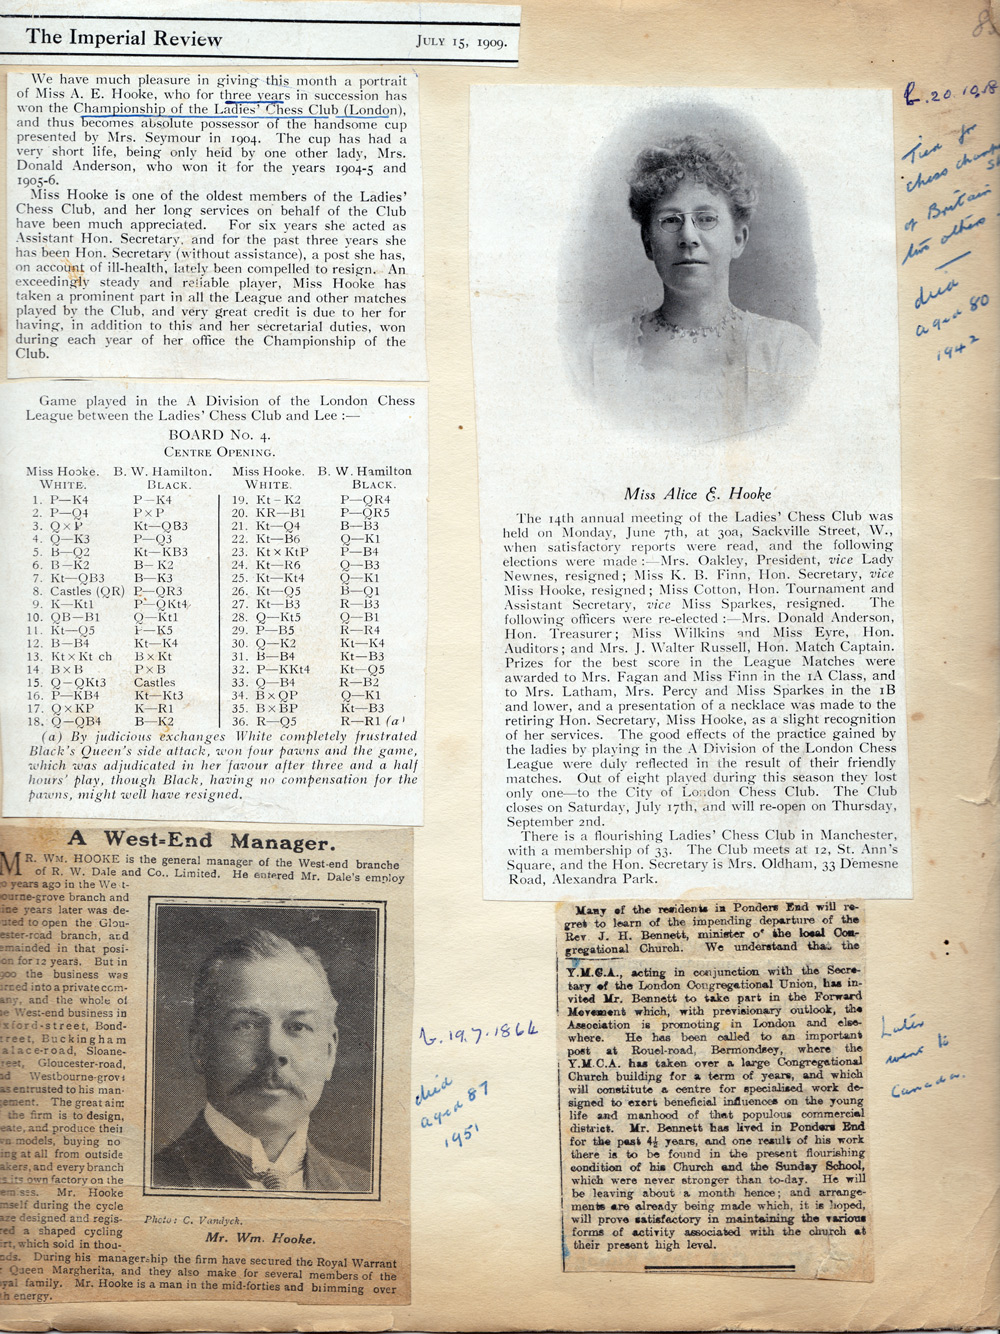 The Imperial Review
JULY 15, 1909.
We have much pleasure in giving this month a portrait
of Miss A. E. Hooke, who for three years in succession has
won the Championship of the Ladies' Chess Club (London),
and thus becomes absolute possessor of the handsome cup
presented by Mrs. Seymour in 1904. The cup has had a
very short life, being only held by one other lady, Mrs.
Donald Anderson, who won it for the years 1904-5 and
1905-6.
Miss Hooke is one of the oldest members of the Ladies'
Chess Club, and her long services on behalf of the Club
have been much appreciated. For six years she acted as
Assistant Hon. Secretary, and for the past three years she
has been Hon. Secretary (without assistance), a post she has,
on account of ill-health, lately been compelled to resign. An
exceedingly steady and reliable player, Miss Hooke has
taken a prominent part in all the League and other matches
played by the Club, and very great credit is due to her for
having, in addition to this and her secretarial duties, won
during each year of her office the Championship of the
Club.
Game played in the A Division of the London Chess
League between the Ladies' Chess Club and Lee :—
BOARD No. 4.
CENTRE OPENING.
Miss Hooke. B. W. Hamilton. Miss Hooke. B. W. Hamilton
WHITE. BLACK. WHITE. BLACK.
1. P—K4 P—K4 19. Kt—K2 P—QR4
2. P—Q4 P×P 20. KR—B1 P—QR5
3. Q×P Kt—QB3 21. Kt—Q4 B—B3
4. Q—K3 P—Q3 22. Kt—B6 Q—K1
5. B—Q2 Kt—KB3 23. Kt×KtP P—B4
6. B—K2 B—K2 24. Kt—R6 Q—B3
7. Kt—QB3 B—K3 25. Kt—Kt4 Q—K1
8. Castles (QR) P—QR3 26. Kt—Q5 B—Q1
9. K—Kt1 P—QKt4 27. Kt—B3 R—B3
10. QB—B1 Q—Kt1 28. Q—Kt5 Q—B1
11. Kt—Q5 P—K5 29. P—B5 R—R4
12. B—B4 Kt—K4 30. Q—K2 Kt—K4
13. Kt×Kt ch B×Kt 31. B—B4 Kt—B3
14. B×B P×B 32. P—KKt4 Kt—Q5
15. Q—QKt3 Castles 33. Q—B4 R—B2
16. P—KB4 Kt—Kt3 34. B×QP Q—K1
17. Q×KP K—R1 35. B×BP Kt—B3
18. Q—QB4 B—K2 36. R—Q5 R—R1 (a)
(a) By judicious exchanges White completely frustrated
Black's Queen's side attack, won four pawns and the game,
which was adjudicated in her favour after three and a half
hours' play, though Black, having no compensation for the
pawns, might well have resigned.
A West-End Manager.
MR. WM. HOOKE is the general manager of the West-end branche
of R. W. Dale and Co., Limited. He entered Mr. Dale's employ
years ago in the We t-
ourne-grove branch and
ine years later was de-
uted to open the Glou-
ester-road branch, and
emained in that posi-
on for 12 years. But in
900 the business was
urned into a private com-
any, and the whole of
e West-end business in
xford-street, Bond-
reet, Buckingham
alace-road, Sloane-
reet, Gloucester-road,
nd Westbourne-grove
as entrusted to his man-
gement. The great aim
the firm is to design,
eate, and produce their
wn models, buying no
ing at all from outside
akers, and every branch
s its own factory on the
emises. Mr. Hooke
mself during the cycle
aze designed and regis-
red a shaped cycling
irt, which sold in thou-
nds. During his managership the firm have secured the Royal Warrant
Queen Margherita, and they also make for several members of the
yal family. Mr. Hooke is a man in the mid-forties and brimming over
h energy.
Photo: C. Vandyck.
Mr. Wm. Hooke.
b. 19.7.1864
died
aged 87
1951
Miss Alice E. Hooke
The 14th annual meeting of the Ladies' Chess Club was
held on Monday, June 7th, at 30a, Sackville Street, W.,
when satisfactory reports were read, and the following
elections were made :—Mrs. Oakley, President, vice Lady
Newnes, resigned ; Miss K. B. Finn, Hon. Secretary, vice
Miss Hooke, resigned ; Miss Cotton, Hon. Tournament and
Assistant Secretary, vice Miss Sparkes, resigned. The
following officers were re-elected :—Mrs. Donald Anderson,
Hon. Treasurer ; Miss Wilkins and Miss Eyre, Hon.
Auditors ; and Mrs. J. Walter Russell, Hon. Match Captain.
Prizes for the best score in the League Matches were
awarded to Mrs. Fagan and Miss Finn in the 1A Class, and
to Mrs. Latham, Mrs. Percy and Miss Sparkes in the 1B
and lower, and a presentation of a necklace was made to the
retiring Hon. Secretary, Miss Hooke, as a slight recognition
of her services. The good effects of the practice gained by
the ladies by playing in the A Division of the London Chess
League were duly reflected in the result of their friendly
matches. Out of eight played during this season they lost
only one—to the City of London Chess Club. The Club
closes on Saturday, July 17th, and will re-open on Thursday,
September 2nd.
There is a flourishing Ladies' Chess Club in Manchester,
with a membership of 33. The Club meets at 12, St. Ann's
Square, and the Hon. Secretary is Mrs. Oldham, 33 Demesne
Road, Alexandra Park.
Tied for
chess champ
of Britain
two others
died
aged 80
1942
Many of the residents in Ponders End will re-
gret to learn of the impending departure of the
Rev. J. H. Bennett, minister of the local Con-
gregational Church. We understand that the
Y.M.C.A., acting in conjunction with the Secre-
tary of the London Congregational Union, has in-
vited Mr. Bennett to take part in the Forward
Movement which, with previsionary outlook, the
Association is promoting in London and else-
where. He has been called to an important
post at Rouel-road, Bermondsey, where the
Y.M.C.A. has taken over a large Congregational
Church building for a term of years, and which
will constitute a centre for specialised work de-
signed to exert beneficial influences on the young
life and manhood of that populous commercial
district. Mr. Bennett has lived in Ponders End
for the past 4½ years, and one result of his work
there is to be found in the present flourishing
condition of his Church and the Sunday School,
which were never stronger than to-day. He will
be leaving about a month hence; and arrange-
ments are already being made which, it is hoped,
will prove satisfactory in maintaining the various
forms of activity associated with the church at
their present high level.
Later
went to
Canada.